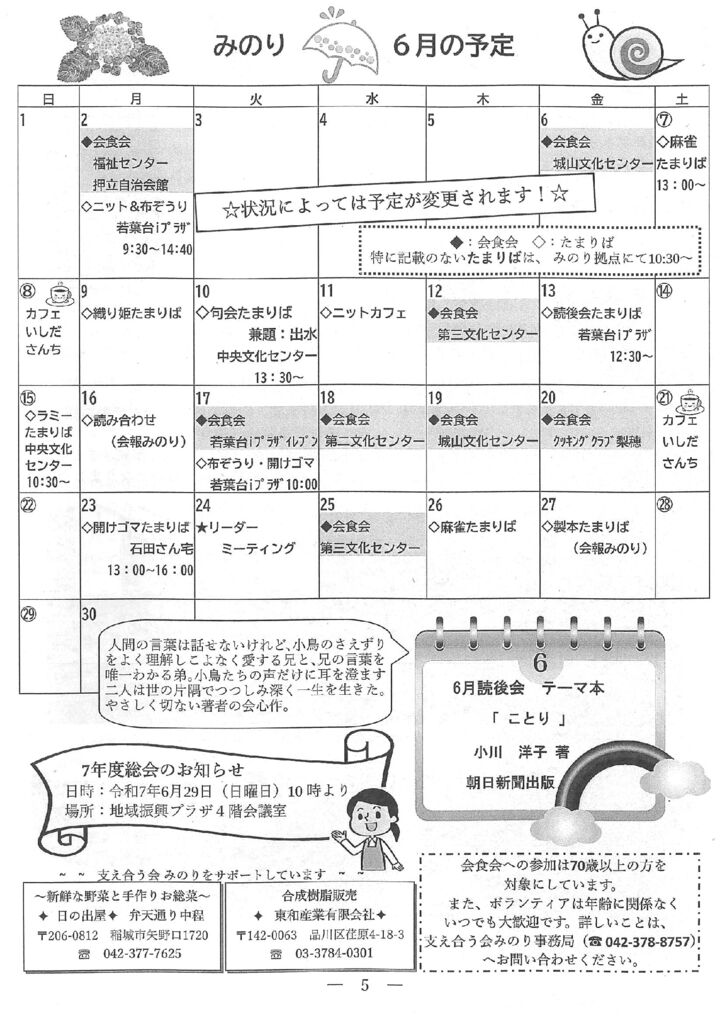 みのり 6月の予定
日 月 火 水 木 金 土
1
2
◆会食会
福祉センター
押立自治会館
◇ニット&布ぞうり
若葉台iプラザ
9:30〜14:40
3
4
5
6
◆会食会
城山文化センター
⑦
◇麻雀
たまりば
13:00〜
☆状況によっては予定が変更されます!☆
◆:会食会 ◇:たまりば
特に記載のないたまりばは、みのり拠点にて10:30〜
⑧
カフェ
いしだ
さんち
9
◇織り姫たまりば
10
◇句会たまりば
兼題:出水
中央文化センター
13:30〜
11
◇ニットカフェ
12
◆会食会
第三文化センター
13
◇読後会たまりば
若葉台iプラザ
12:30〜
⑭
⑮
◇ラミー
たまりば
中央文化
センター
10:30〜
16
◇読み合わせ
(会報みのり)
17
◆会食会
若葉台iプラザイレブン
◇布ぞうり・開けゴマ
若葉台iプラザ10:00
18
◆会食会
第二文化センター
19
◆会食会
城山文化センター
20
◆会食会
クッキングクラブ梨穂
㉑
カフェ
いしだ
さんち
㉒
23
◇開けゴマたまりば
石田さん宅
13:00〜16:00
24
★リーダー
ミーティング
25
◆会食会
第三文化センター
26
◇麻雀たまりば
27
◇製本たまりば
(会報みのり)
㉘
㉙
30
人間の言葉は話せないけれど、小鳥のさえずり
をよく理解しこよなく愛する兄と、兄の言葉を
唯一わかる弟。小鳥たちの声だけに耳を澄ます
二人は世の片隅でつつしみ深く一生を生きた。
やさしく切ない著者の会心作。
6
6月読後会 テーマ本
「 ことり 」
小川 洋子 著
朝日新聞出版
7年度総会のお知らせ
日時:令和7年6月29日(日曜日)10時より
場所:地域振興プラザ4階会議室
~ ~ 支え合う会 みのりをサポートしています ~ ~
〜新鮮な野菜と手作りお総菜〜
✦ 日の出屋✦ 弁天通り中程
〒206-0812 稲城市矢野口1720
☎ 042-377-7625
合成樹脂販売
✦ 東和産業有限会社✦
〒142-0063 品川区荏原4-18-3
☎ 03-3784-0301
会食会への参加は70歳以上の方を
対象にしています。
また、ボランティアは年齢に関係なく
いつでも大歓迎です。詳しいことは、
支え合う会みのり事務局(☎042-378-8757)
へお問い合わせください。
― 5 ―